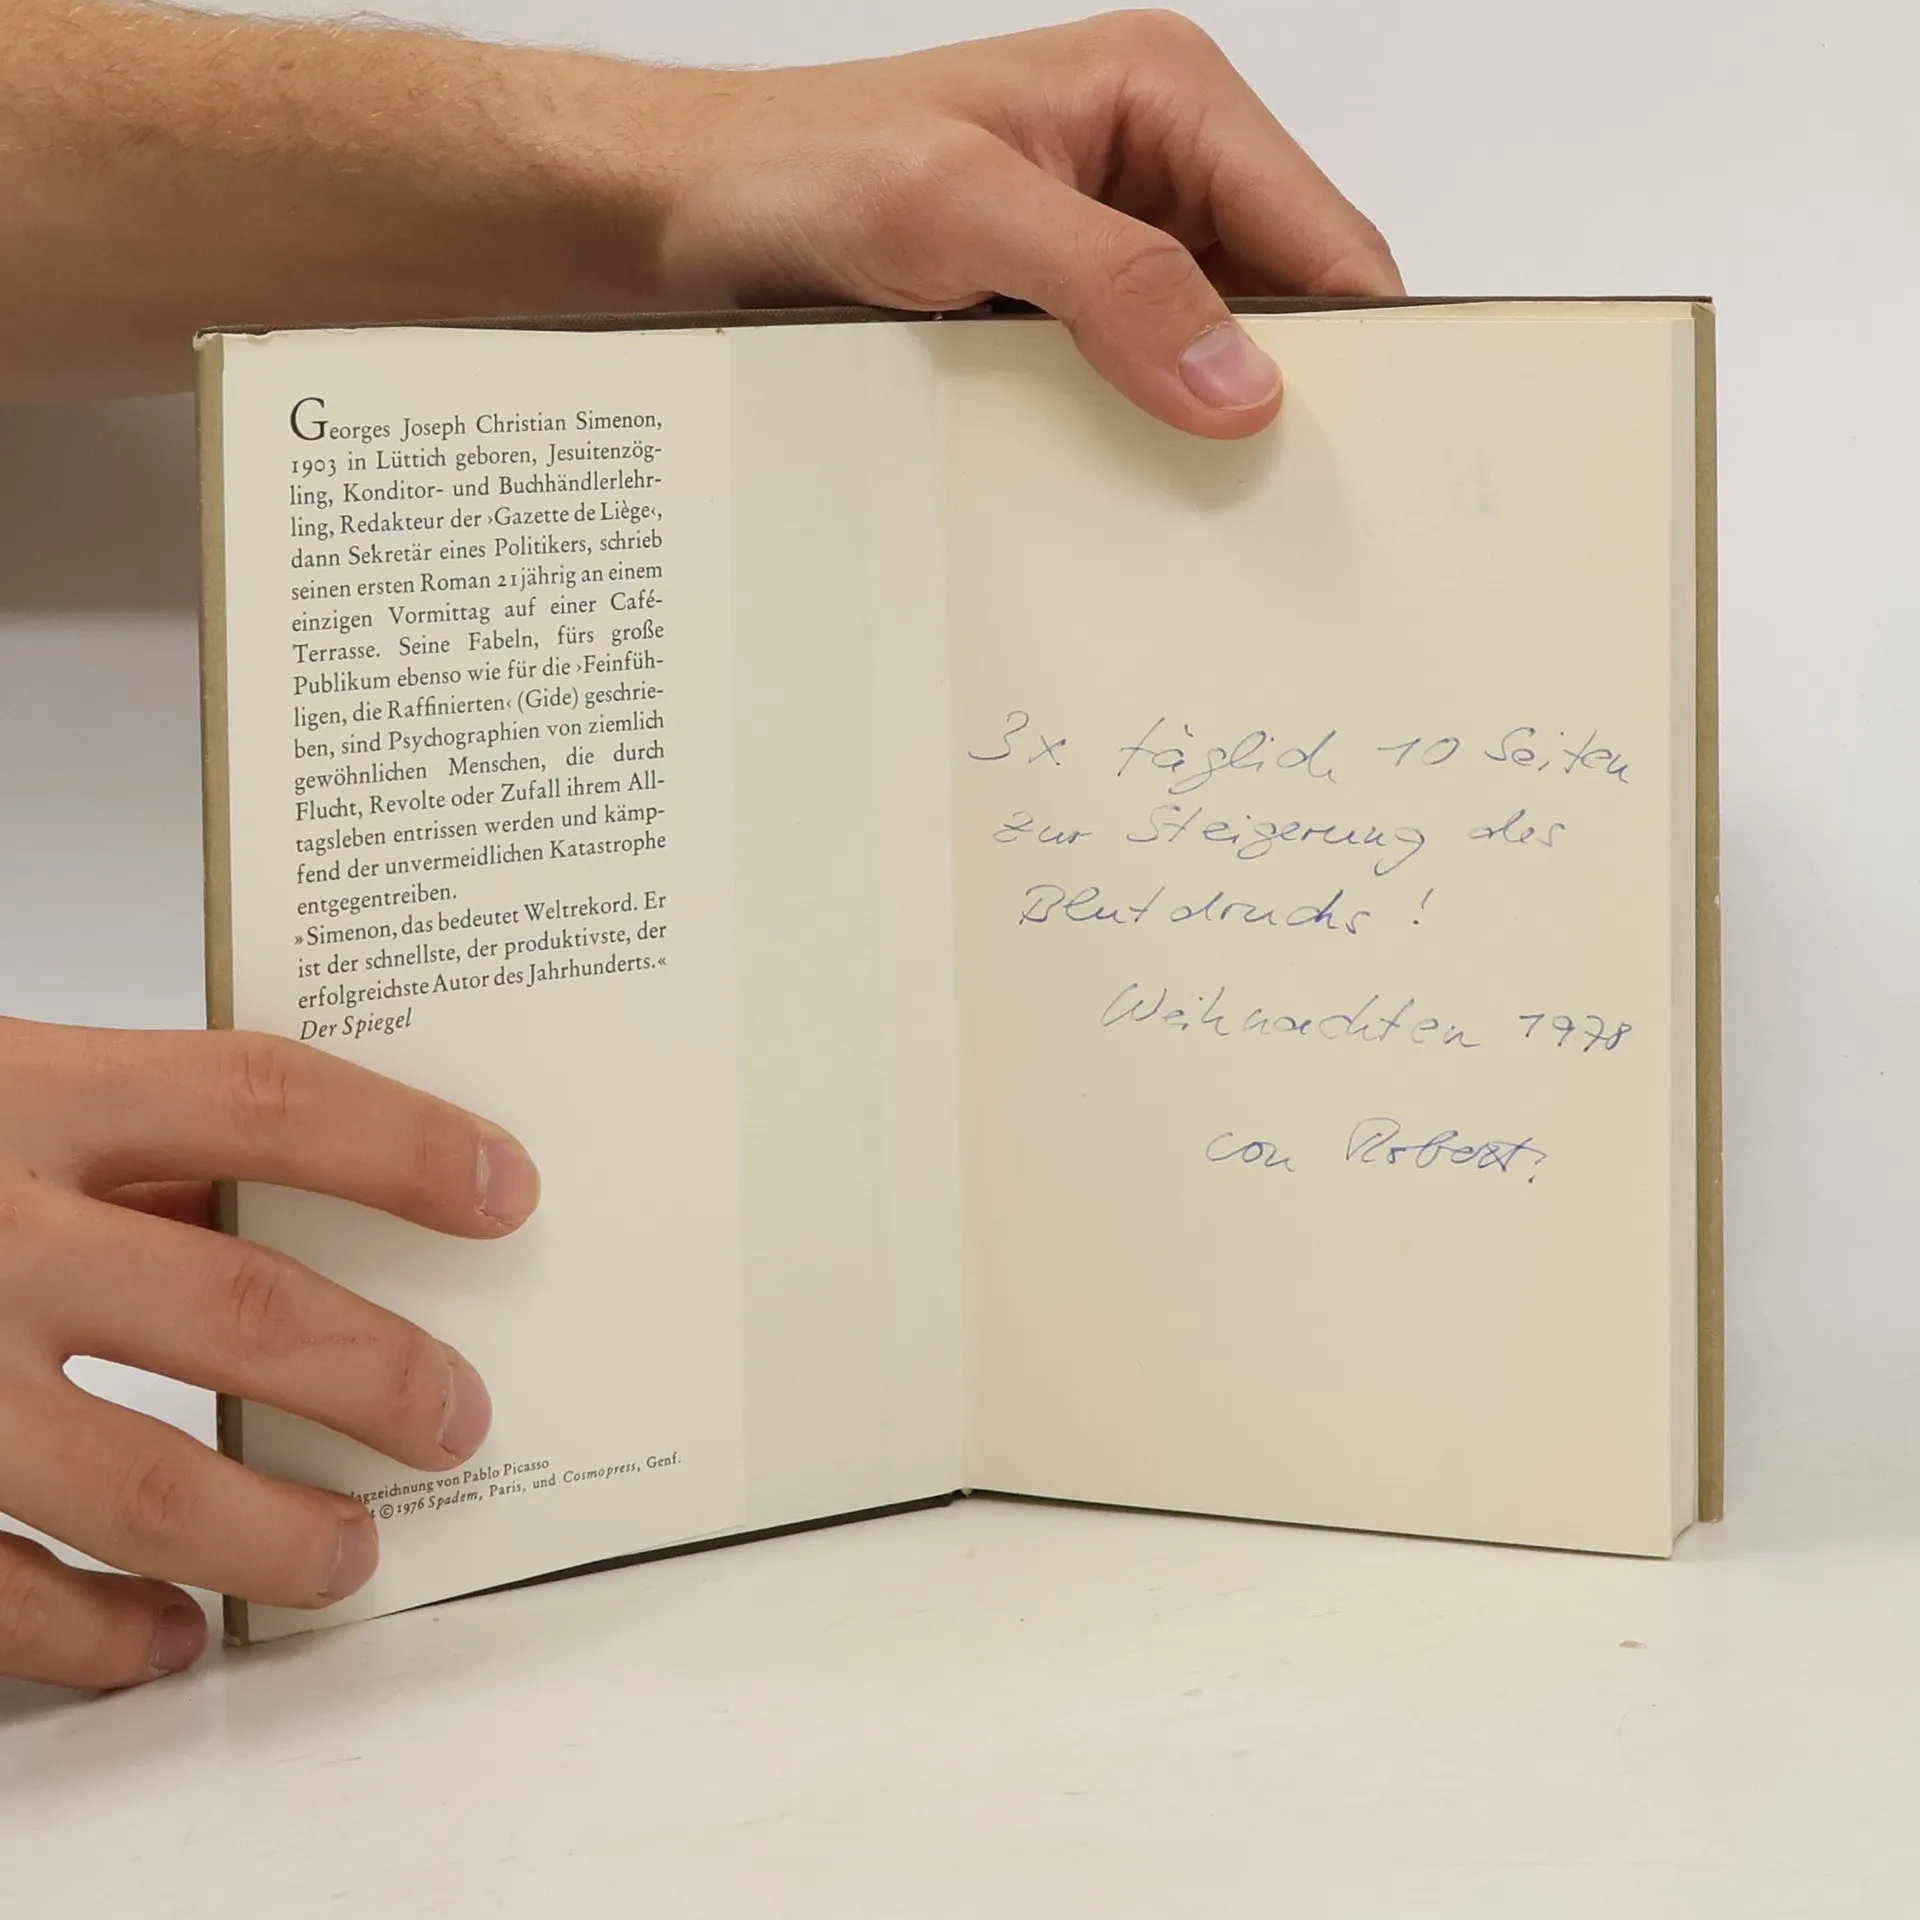 Georges Joseph Christian Simenon,
1903 in Lüttich geboren, Jesuitenzög-
ling, Konditor- und Buchhändlerlehr-
ling, Redakteur der ›Gazette de Liège‹,
dann Sekretär eines Politikers, schrieb
seinen ersten Roman 21jährig an einem
einzigen Vormittag auf einer Café-
Terrasse. Seine Fabeln, fürs große
Publikum ebenso wie für die ›Feinfüh-
ligen, die Raffinierten‹ (Gide) geschrie-
ben, sind Psychographien von ziemlich
gewöhnlichen Menschen, die durch
Flucht, Revolte oder Zufall ihrem All-
tagsleben entrissen werden und kämp-
fend der unvermeidlichen Katastrophe
entgegentreiben.
»Simenon, das bedeutet Weltrekord. Er
ist der schnellste, der produktivste, der
erfolgreichste Autor des Jahrhunderts.«
Der Spiegel
von Pablo Picasso
© 1976 Spadem, Paris, und Cosmopress, Genf.
3x täglich 10 Seiten
zur Steigerung des
Blutdrucks !
Weihnachten 1978
von Robert